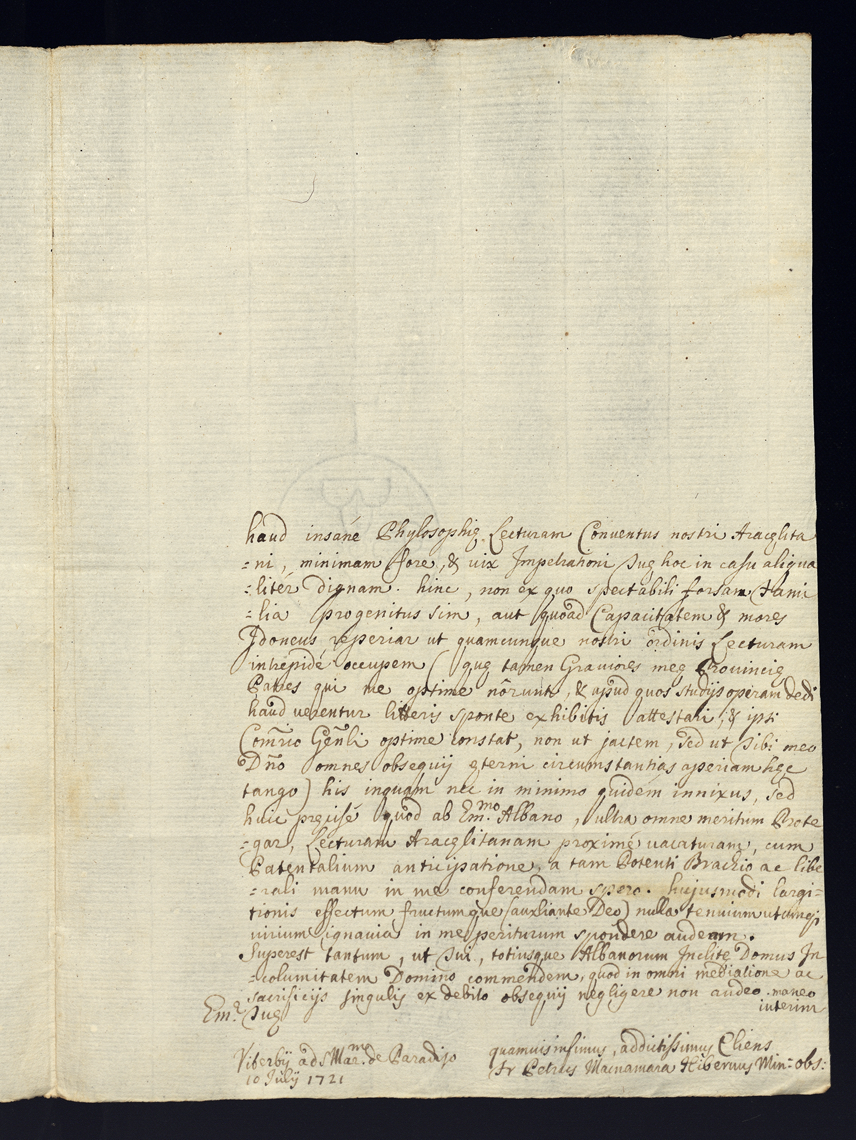 haud insané Phylosophię Lecturam Conventus nostri Aracęlita
=ni, minimam fore, & vix Impetrationi suę hoc in casu aliqua
=litér dignam. hinc, non ex quo spectabili forsan Fami
=lia progenitus sim, aut quoad Capacitatem & mores
Idoneus reperiar ut quamcunque nostri ordinis Lecturam
intrepidé occupem ( quę tamen Graviores meę Provincię
Patres qui me optime nôrunt, & apud quos studijs operam dedi
haud verentur litteris sponte exhibitis attestari, & ipsi
Com̃rio Geñli optime constat, non ut jactem, sed ut sibi meo
Dño omnes obsequij ęterni circumstantias aperiam hęc
tango ) his inquam nec in minimo quidem innixus, sed
huic pręcisé quod ab Em.mo Albano, ultra omne meritum Prote
=gar, Lecturam Aracęlitanam proximé vacaturam, cum
Patentalium anticipatione, a tam Potenti Brachio ac libe
=rali manu in me conferendam spero. hujusmodi largi=
tionis effectum fructumque (auxliante Deo) nulla tenuium utcunq;
virium ignavia in me periturum spondere audeam.
Superest tantum, ut sui, totiusque Albanorum Inclitę Domus In
=columitatem Domino commendem, quod in omni mediatione ac
sacrificijs singulis ex debito obsequij negligere non audeo. maneo
interim
Em.ę Suę
Viterbij ad S. Mar.m de Paradiso
10 Julij 1721
quamvis infimus, addictissimus Cliens
Fr Petrus Macnamara Hibernus Min: obs: